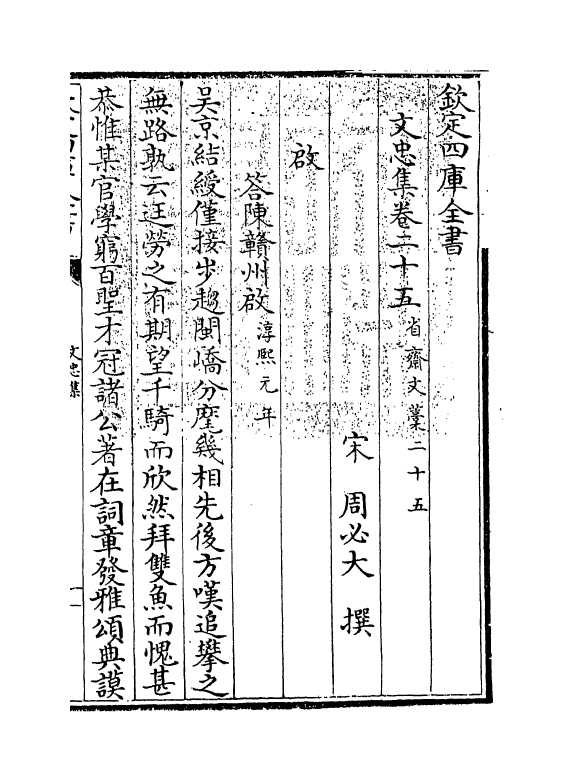 欽定四庫全書
文忠集卷二十五 省齋文藁二十五
宋 周必大 撰
啟
答陳贛州啟 淳熙元年
吴京結綬僅接步趨閩嶠分麾幾相先後方嘆追攀之
無路孰云迋勞之有期望千騎而欣然拜雙魚而愧甚
恭惟某官學窮百聖才冠諸公著在詞章發雅頌典謨
文忠集
一